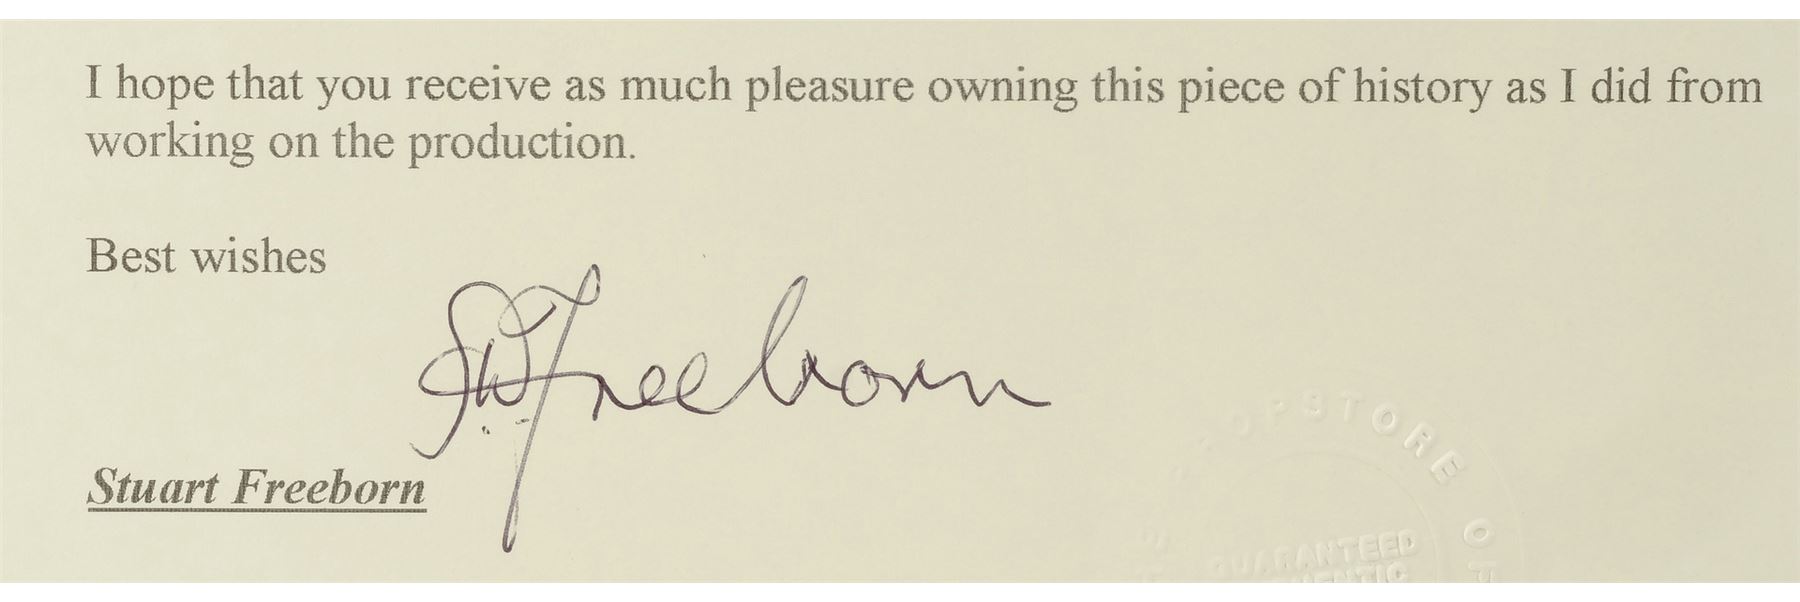 I hope that you receive as much pleasure owning this piece of history as I did from
working on the production.
Best wishes
SW Freeborn
Stuart Freeborn
PROPSTORE OF
GUARANTEED
AUTHENTIC